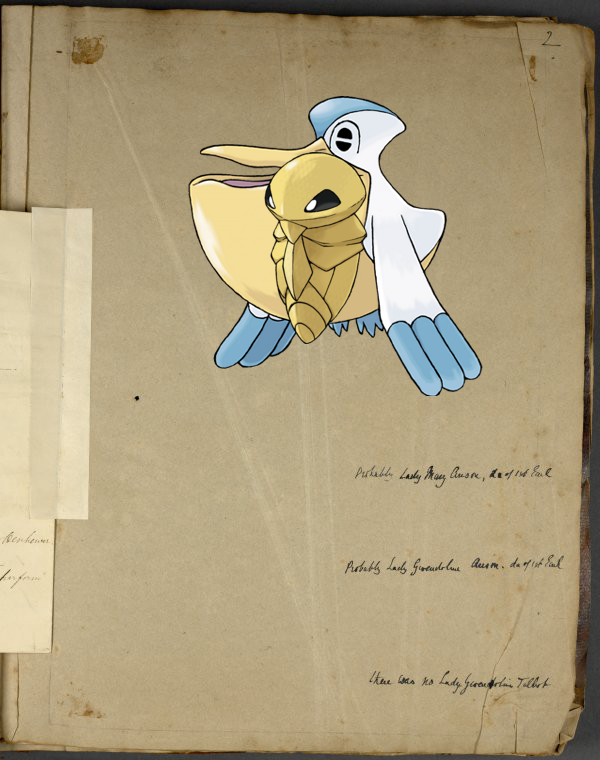 2
Henhewer
Perform
Probably Lady Mary Anson, da of 1st Earl
Probably Lady Gwendoline Anson. da of 1st Earl
there was no Lady Gwendoline Talbot